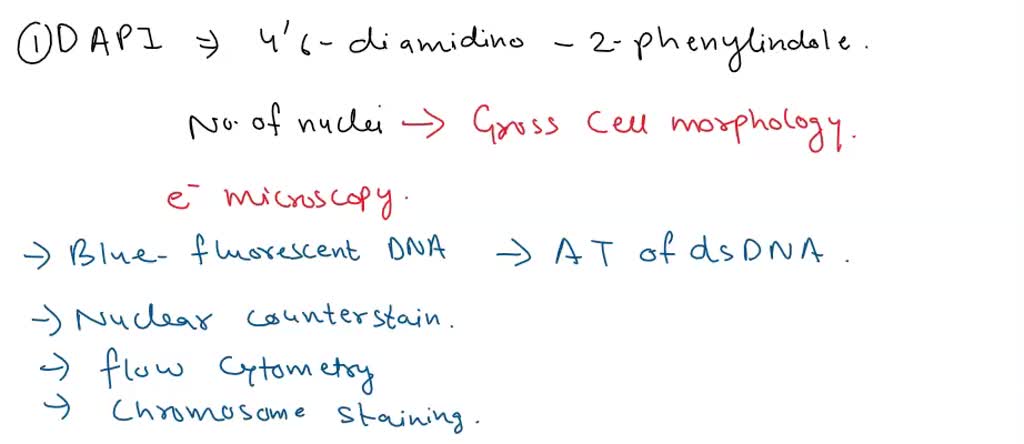 ① DAPI ⇒ 4'6-diamidino - 2-phenylindole.
No. of nuclei → Gross Cell morphology.
e⁻ microscopy.
→ Blue-fluorescent DNA → AT of dsDNA.
→ Nuclear counterstain.
→ flow Cytometry
→ Chromosome staining.